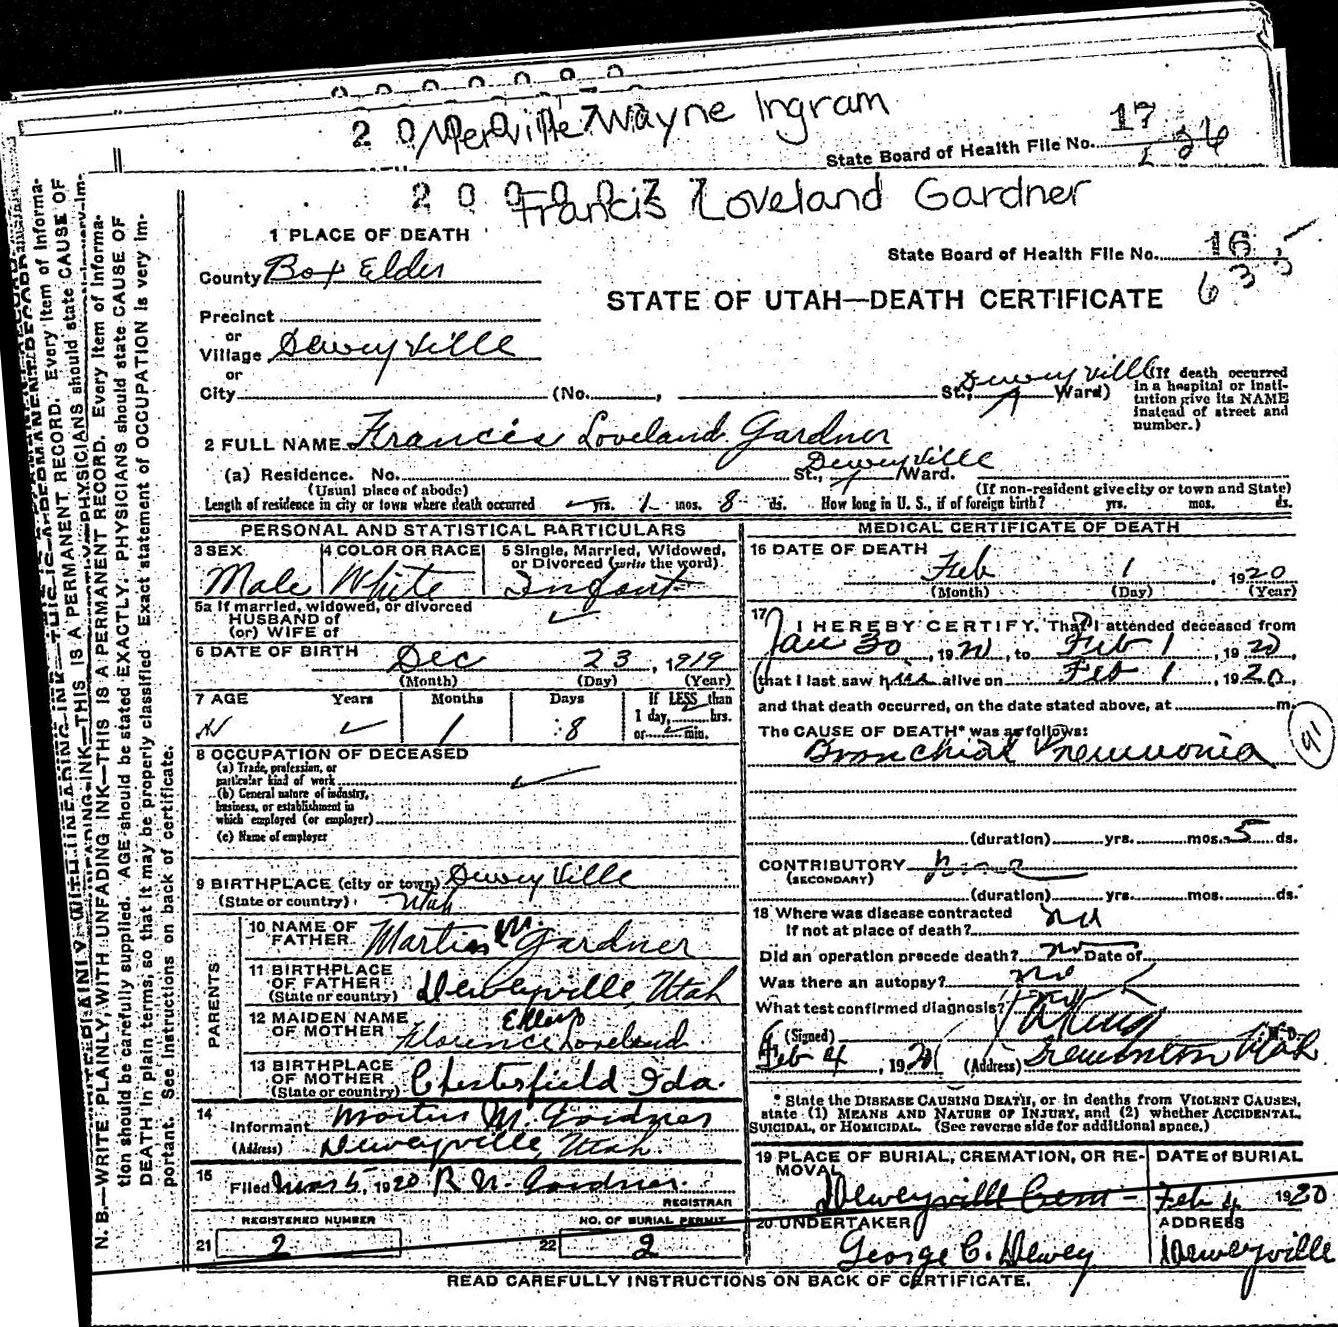 2 0 0 0 0 7 7
Merville Wayne Ingram
State Board of Health File No. 17
26
2 0 0 0 0 7 7
Francis Loveland Gardner
1 PLACE OF DEATH
State Board of Health File No. 16
635
County Box Elder
STATE OF UTAH—DEATH CERTIFICATE
Precinct
or
Village Deweyville
or
City (No. , St., Deweyville Ward)
(If death occurred in a hospital or institution give its NAME instead of street and number.)
2 FULL NAME Francis Loveland Gardner
(a) Residence. No. St., Deweyville Ward.
(Usual place of abode) (If non-resident give city or town and State)
Length of residence in city or town where death occurred yrs. 1 mos. 8 ds. How long in U. S., if of foreign birth? yrs. mos. ds.
PERSONAL AND STATISTICAL PARTICULARS
3 SEX 4 COLOR OR RACE 5 Single, Married, Widowed, or Divorced (write the word)
Male White Infant
5a If married, widowed, or divorced
HUSBAND of
(or) WIFE of
6 DATE OF BIRTH Dec 23, 1919
(Month) (Day) (Year)
7 AGE Years Months Days If LESS than
1 day, hrs.
or min.
1 8
8 OCCUPATION OF DECEASED
(a) Trade, profession, or
particular kind of work
(b) General nature of industry,
business, or establishment in
which employed (or employer)
(c) Name of employer
9 BIRTHPLACE (city or town) Deweyville
(State or country) Utah
PARENTS
10 NAME OF
FATHER Martin M. Gardner
11 BIRTHPLACE
OF FATHER
(State or country) Deweyville, Utah
12 MAIDEN NAME
OF MOTHER Florence Ellen Loveland
13 BIRTHPLACE
OF MOTHER
(State or country) Chesterfield Ida.
14
Informant Martin M. Gardner
(Address) Deweyville, Utah.
15
Filed Mar 5, 1920 R. N. Gardner.
REGISTRAR
REGISTERED NUMBER NO. OF BURIAL PERMIT
21 2 22 2
MEDICAL CERTIFICATE OF DEATH
16 DATE OF DEATH
Feb 1, 1920
(Month) (Day) (Year)
17 I HEREBY CERTIFY, That I attended deceased from
Jan 30, 1920, to Feb 1, 1920,
(that I last saw him alive on Feb 1, 1920,
and that death occurred, on the date stated above, at m.
The CAUSE OF DEATH* was as follows:
Bronchial Pneumonia
91
(duration) yrs. mos. 5 ds.
CONTRIBUTORY none
(SECONDARY)
(duration) yrs. mos. ds.
18 Where was disease contracted
If not at place of death?
Did an operation precede death? no Date of
Was there an autopsy? no
What test confirmed diagnosis?
(Signed) M.D.
Feb 4, 1920 (Address) Tremonton Utah
* State the DISEASE CAUSING DEATH, or in deaths from VIOLENT CAUSES,
state (1) MEANS AND NATURE OF INJURY, and (2) whether ACCIDENTAL,
SUICIDAL, or HOMICIDAL. (See reverse side for additional space.)
19 PLACE OF BURIAL, CREMATION, OR REMOVAL DATE of BURIAL
Deweyville Cem Feb 4 1920
20 UNDERTAKER ADDRESS
George C. Dewey Deweyville
READ CAREFULLY INSTRUCTIONS ON BACK OF CERTIFICATE.
N. B.—WRITE PLAINLY, WITH UNFADING INK—THIS IS A PERMANENT RECORD. Every item of information should be carefully supplied. AGE should be stated EXACTLY. PHYSICIANS should state CAUSE OF
DEATH in plain terms, so that it may be properly classified. Exact statement of OCCUPATION is very important. See instructions on back of certificate.